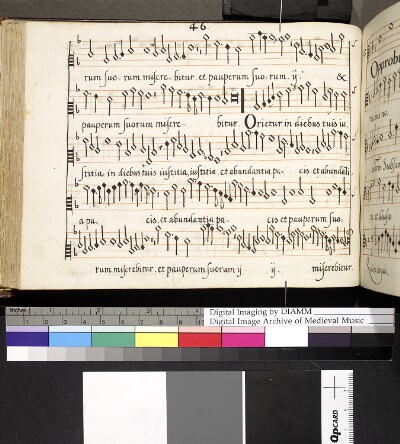 46
rum suo. rum misere. bitur. et pauperum suo. rum. ij. &
pauperum suorum misere. bitur Orietur in diebus tuis iu.
stitia in diebus tuis iustitia, iustitia. et abundantia pa. cis et abundati
a pa. cis. et abundantia pa. cis et pauperum suo.
rum miserebitur. et pauperum suorum ij ij. miserebitur.
Opprobri
inches 1 2 3 4 5 6 7 8 9
Digital Imaging by DIAMM
Digital Image Archive of Medieval Music
QPCARD